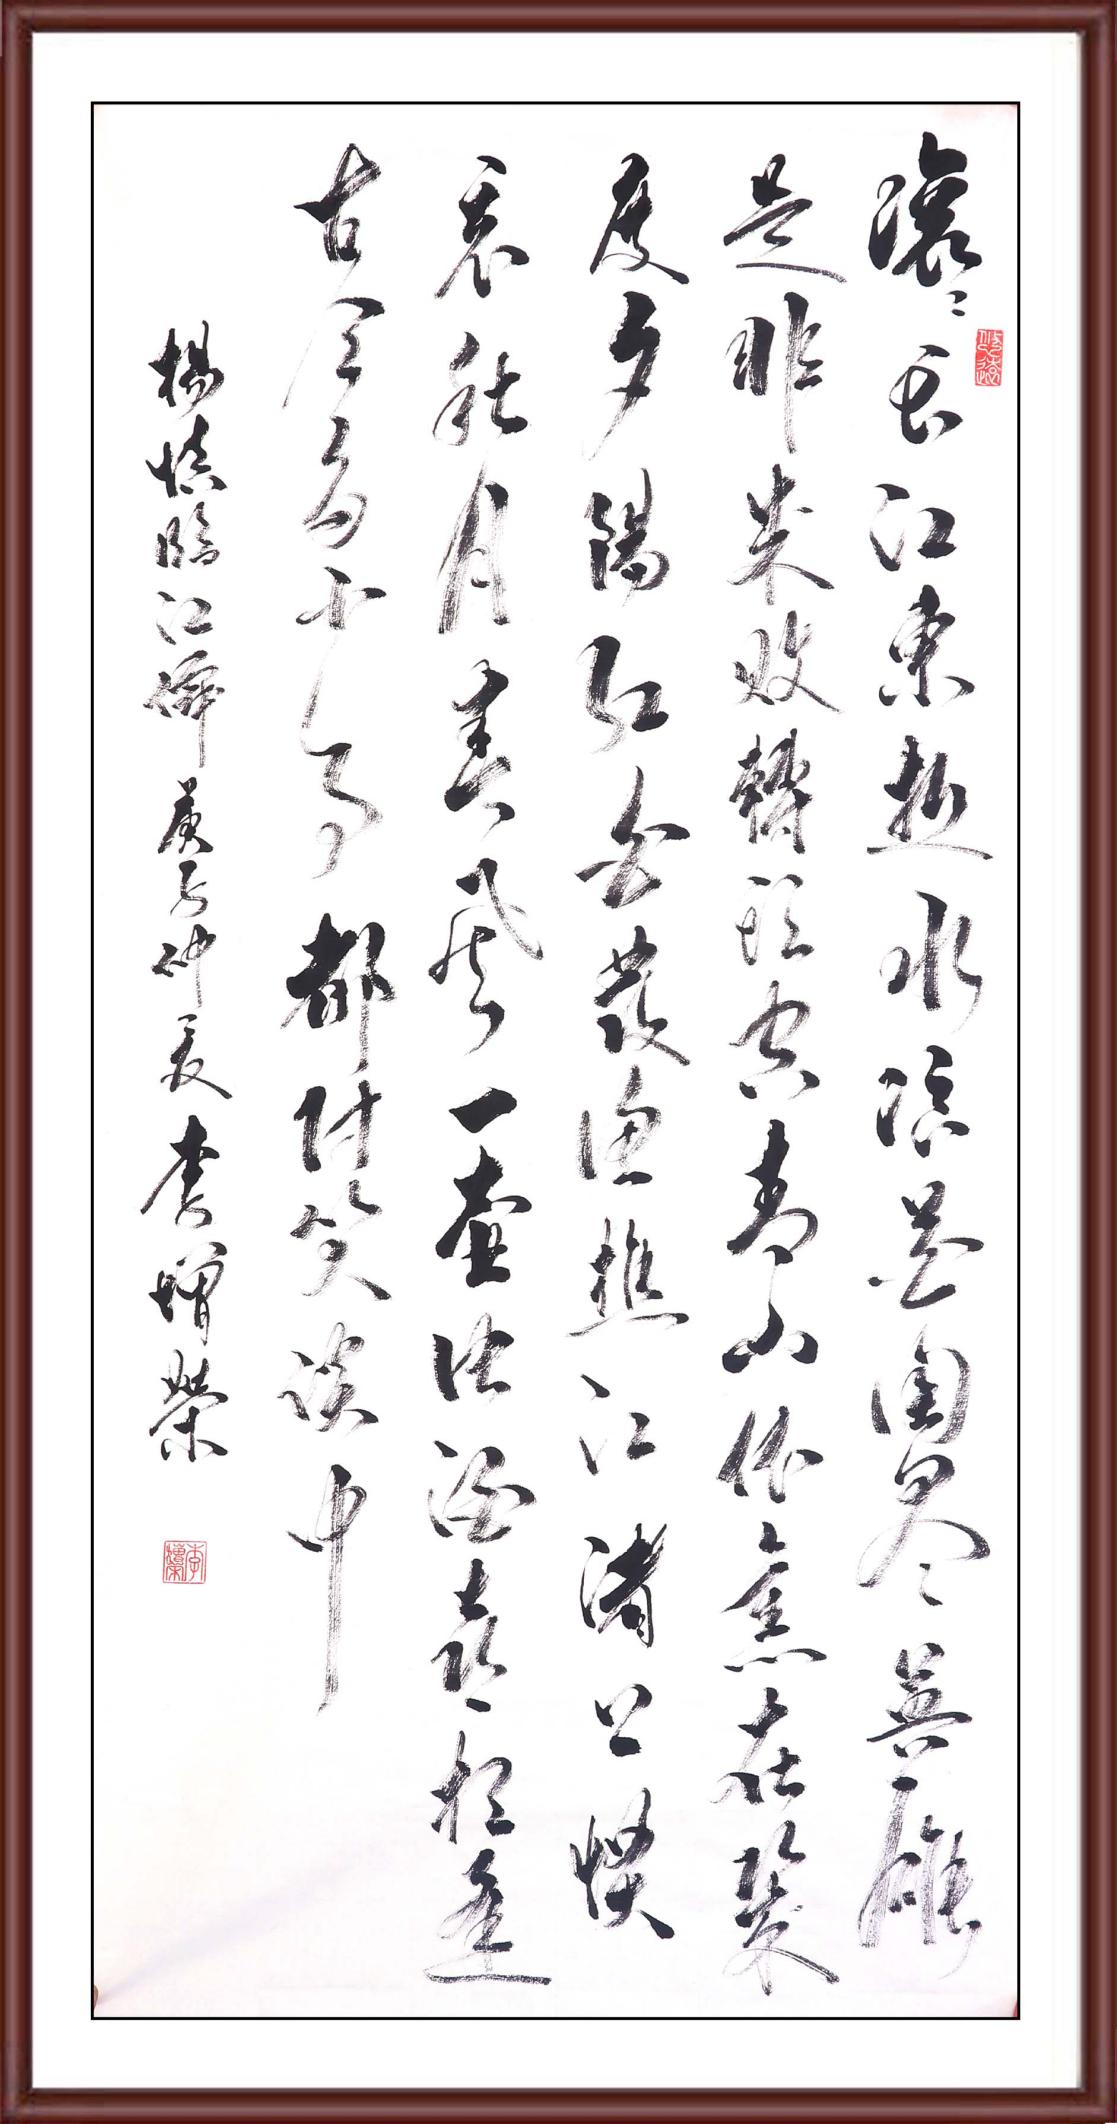 滚滚长江东逝水浪花淘尽英雄
是非成败转头空青山依旧在几
度夕阳红白发渔樵江渚上惯
看秋月春风一壶浊酒喜相逢
古今多少事都付笑谈中
杨慎临江仙庚子仲夏李增荣